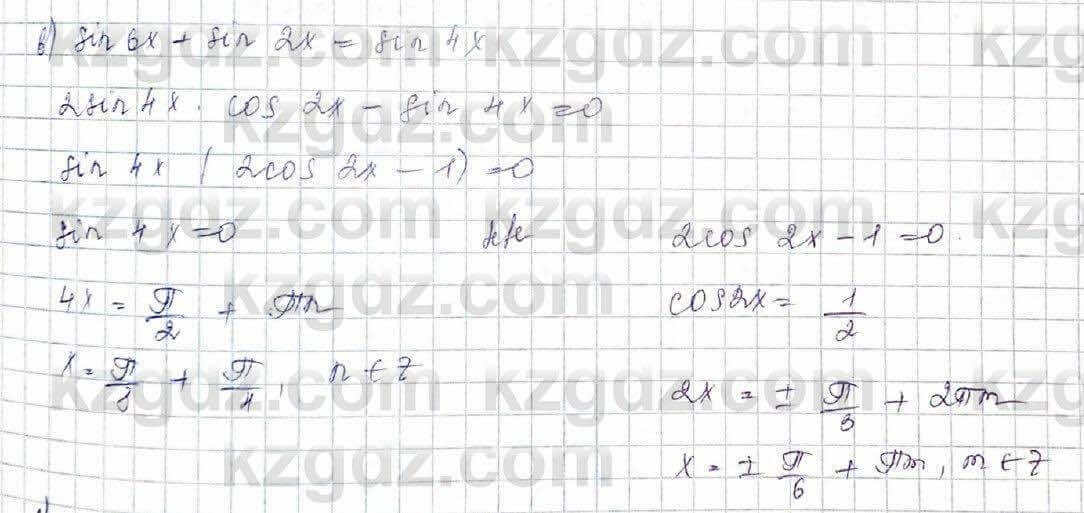 в) sin 6x + sin 2x = sin 4x
2sin 4x · cos 2x - sin 4x = 0
sin 4x (2cos 2x - 1) = 0
sin 4x = 0 2cos 2x - 1 = 0.
4x = π/2 + πn cos2x = 1/2
x = π/8 + π/4, n ∈ Z
2x = ± π/3 + 2πn
x = ± π/6 + πn, n ∈ Z
kzgdz.com